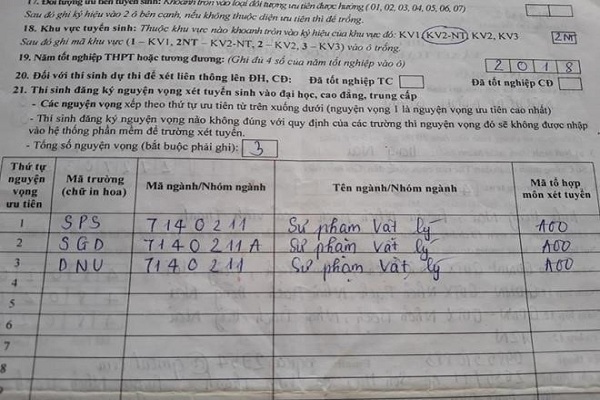 17. Đối tượng ưu tiên tuyển sinh: Khoanh tròn vào loại đối tượng ưu tiên được hưởng (01, 02, 03, 04, 05, 06, 07)
Sau đó ghi ký hiệu vào 2 ô bên cạnh, nếu không thuộc diện ưu tiên thì để trống.
18. Khu vực tuyển sinh: Thuộc khu vực nào khoanh tròn vào ký hiệu của khu vực đó: KV1, KV2-NT, KV2, KV3 2NT
Sau đó ghi mã khu vực (1 – KV1, 2NT – KV2-NT, 2 – KV2, 3 – KV3) vào ô trống.
19. Năm tốt nghiệp THPT hoặc tương đương: (Ghi đủ 4 số của năm tốt nghiệp vào ô) 2 0 1 8
20. Đối với thí sinh dự thi để xét liên thông lên ĐH, CĐ: Đã tốt nghiệp TC Đã tốt nghiệp CĐ
21. Thí sinh đăng ký nguyện vọng xét tuyển sinh vào đại học, cao đẳng, trung cấp
- Các nguyện vọng xếp theo thứ tự ưu tiên từ trên xuống dưới (nguyện vọng 1 là nguyện vọng ưu tiên cao nhất)
- Thí sinh đăng ký nguyện vọng nào không đúng với quy định của các trường thì nguyện vọng đó sẽ không được nhập
vào hệ thống phần mềm để trường xét tuyển.
- Tổng số nguyện vọng (bắt buộc phải ghi): 3
Thứ tự nguyện vọng ưu tiên Mã trường (chữ in hoa) Mã ngành/Nhóm ngành Tên ngành/Nhóm ngành Mã tổ hợp môn xét tuyển
1 SPS 7140211 Sư phạm Vật lý A00
2 SGD 7140211A Sư phạm Vật lý A00
3 DNU 7140211 Sư phạm Vật lý A00
4
5
6
7
8